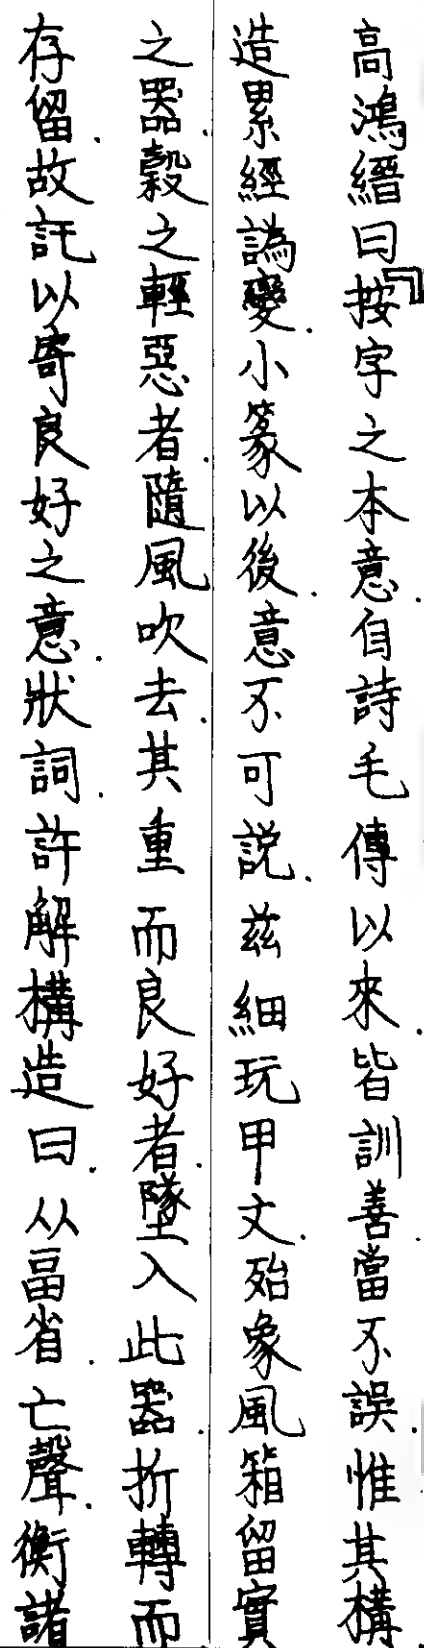 高鴻縉曰『按字之本意.自詩毛傳以來.皆訓善.當不誤.惟其構
造累經譌變.小篆以後.意不可説.茲細玩甲文.殆象風箱留實
之器.穀之輕惡者.隨風吹去.其重而良好者.墜入此器.折轉而
存留.故託以寄良好之意.狀詞.許解構造曰.从畐省.亡聲.衡諸